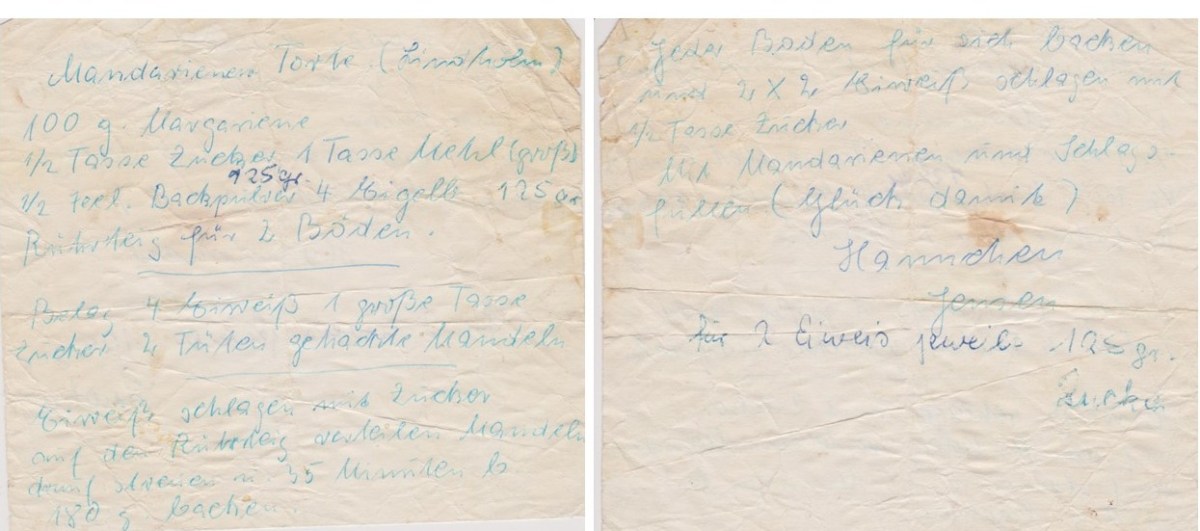 Mandarienen Torte (Lindholm)
100 g. Margariene
1/2 Tasse Zucker 1 Tasse Mehl (groß)
125 gr.
1/2 Teel. Backpulver 4 Eigelb 125 gr
Rührteig für 2 Böden.
Belag 4 Eiweiß 1 große Tasse
Zucker 2 Tüten gehackte Mandeln
Eiweiß schlagen mit Zucker
auf den Rührteig verteilen Mandeln
drauf streuen u. 35 Minuten b
180 g bachen.
Jeder Boden für sich bachen
und 2 X 2 Eiweiß schlagen mit
1/2 Tasse Zucker
Mit Mandarienen und Schlags-
füllen (Glück damit)
Hannchen
Jensen
für 2 Eiweis jeweils 125 gr.
Zucker